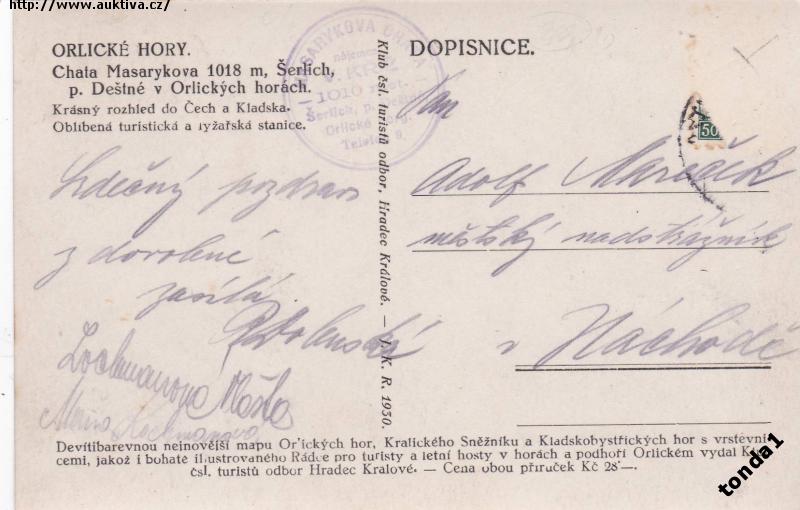 http://www.auktiva.cz/
ORLICKÉ HORY.
Chata Masarykova 1018 m, Šerlich,
p. Deštné v Orlických horách.
Krásný rozhled do Čech a Kladska.
Oblíbená turistická a lyžařská stanice.
MASARYKOVA CHATA
nájemce
V. KRÁL
1010 m
Šerlich, p. Deštné
Orlické
Telefon 9.
DOPISNICE.
50
Pan
Adolf Mareček
městský nadstrážník
v Náchodě
Srdečný pozdrav
z dovolené
zasílá
Lochmanová
Marie Lochmanova
Klub čsl. turistů odbor. Hradec Králové. — J. K. R. 1930.
Devítibarevnou nejnovější mapu Orlických hor, Kralického Sněžníku a Kladskobystřických hor s vrstevni-
cemi, jakož i bohatě ilustrovaného Rádce pro turisty a letní hosty v horách a podhoří Orlickém vydal Klub
čsl. turistů odbor Hradec Kralové. — Cena obou příruček Kč 28·—.
tonda1